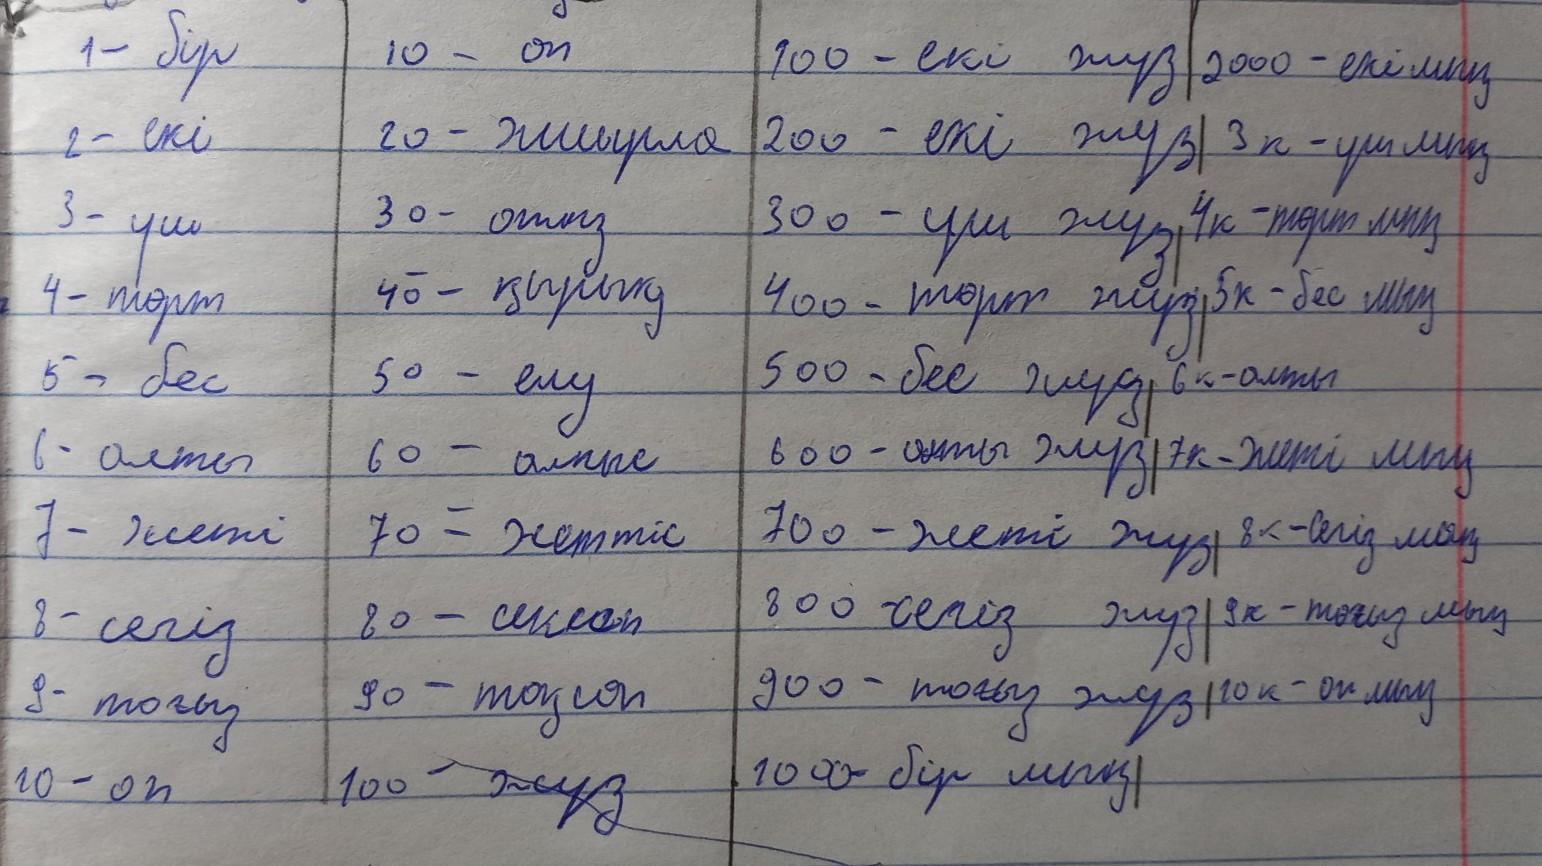 1 - бір 10 - он 100 - екі жүз 2000 - екі мың
2 - екі 20 - жиырма 200 - екі жүз 3к - уш мың
3 - уш 30 - отыз 300 - уш жуз 4к - төрт мың
4 - төрт 40 - қырық 400 - төрт жуз 5к - бес мың
5 - бес 50 - елу 500 - бес жуз 6к - алты
6 - алты 60 - алпыс 600 - алты жуз 7к - жеті мың
7 - жеті 70 = жеттіс 700 - жеті жуз 8к - сегіз мың
8 - сегіз 80 - сексен 800 - сегіз жуз 9к - тоғыз мың
9 - тоғыз 90 - тоқсон 900 - тоғыз жуз 10к - он мың
10 - он 100 - жуз 1000 - бір мың